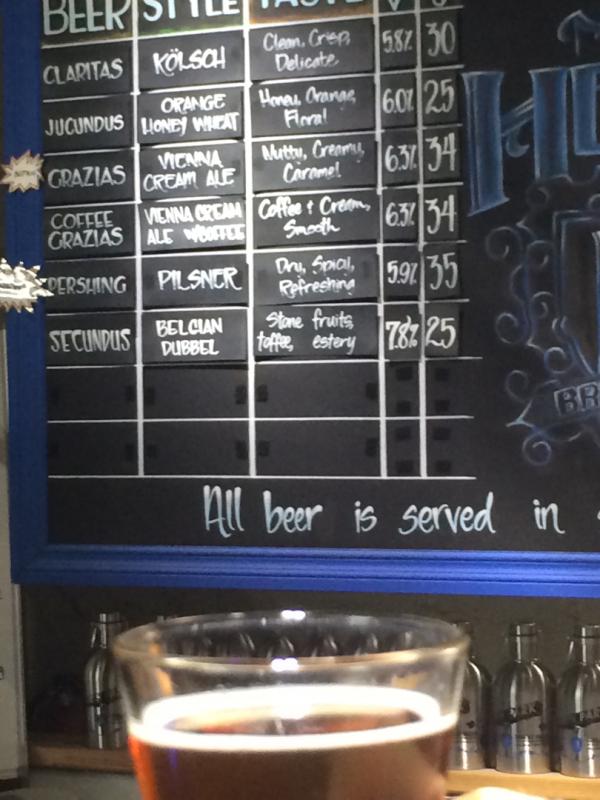 BEER STYLE TASTE
CLARITAS KÖLSCH Clean, Crisp, Delicate 5.8% 30
JUCUNDUS ORANGE HONEY WHEAT Honey, Orange, Floral 6.0% 25
GRAZIAS VIENNA CREAM ALE Nutty, Creamy, Caramel 6.3% 34
COFFEE GRAZIAS VIENNA CREAM ALE W/COFFEE Coffee + Cream, Smooth 6.3% 34
PERSHING PILSNER Dry, Spicy, Refreshing 5.9% 35
SECUNDUS BELGIAN DUBBEL Stone fruits, toffee, estery 7.8% 25
All beer is served in
BR